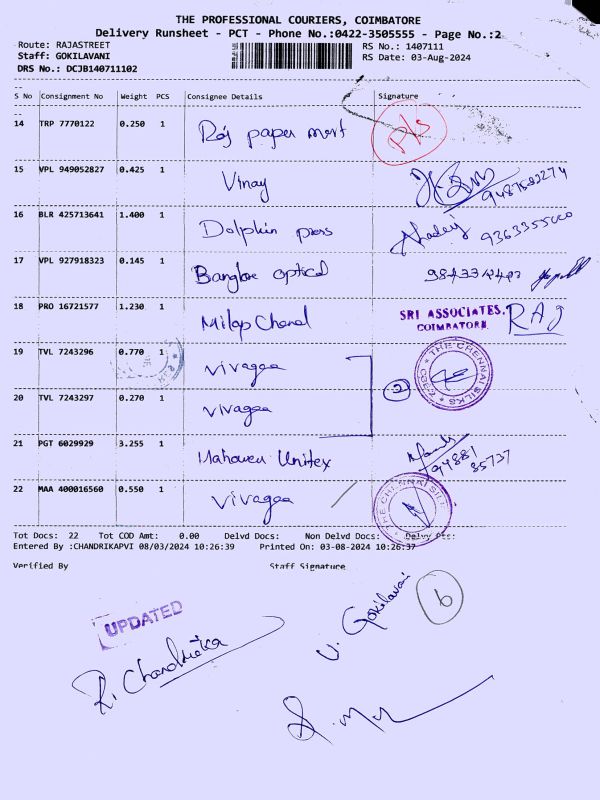 THE PROFESSIONAL COURIERS, COIMBATORE
Delivery Runsheet - PCT - Phone No.:0422-3505555 - Page No.:2
Route: RAJASTREET RS No.: 1407111
Staff: GOKILAVANI RS Date: 03-Aug-2024
DRS No.: DCJB140711102
S No Consignment No Weight PCS Consignee Details Signature
14 TRP 7770122 0.250 1 Raj paper mart
15 VPL 949052827 0.425 1 Vinay
16 BLR 425713641 1.400 1 Dolphin press
17 VPL 927918323 0.145 1 Banglore optical
18 PRO 16721577 1.230 1 Milap Chand SRI ASSOCIATES, COIMBATORE RAJ
19 TVL 7243296 0.770 1 vivagaa THE CHENNAI SILKS
20 TVL 7243297 0.270 1 vivagaa 2
21 PGT 6029929 3.255 1 Mahaveer Unitex 94881 85737
22 MAA 400016560 0.550 1 vivagaa THE CHENNAI SIL
Tot Docs: 22 Tot COD Amt: 0.00 Delvd Docs: Non Delvd Docs: Delvy Pts:
Entered By :CHANDRIKAPVI 08/03/2024 10:26:39 Printed On: 03-08-2024 10:26:37
Verified By Staff Signature
UPDATED
R. Chandrika
V. Gokilavani
6